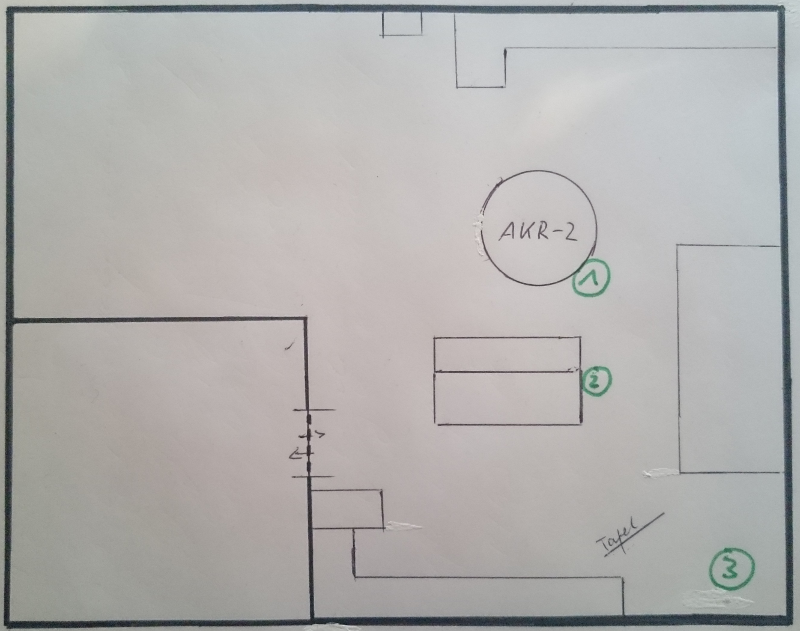 AKR-2
1
2
Tafel
3